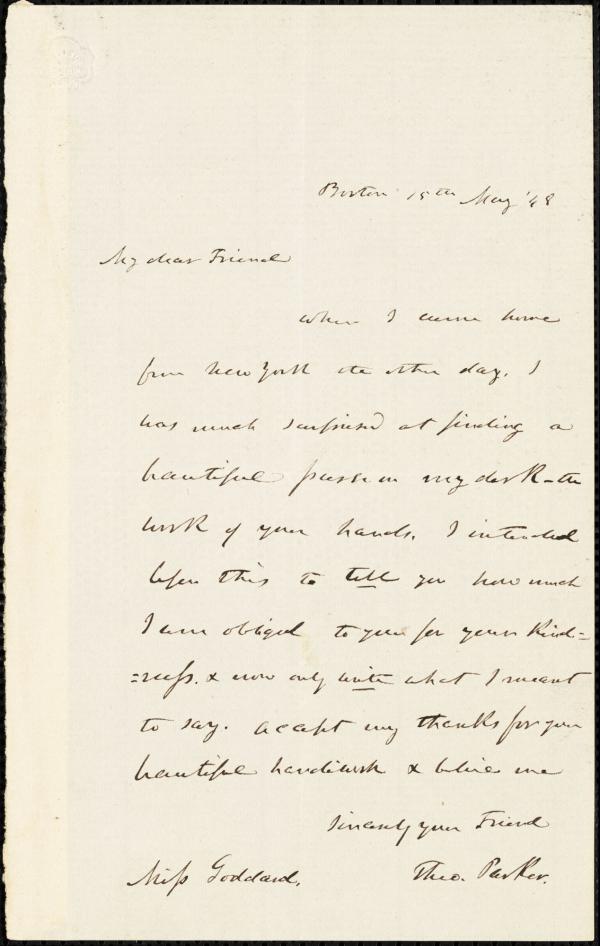 Boston 15th May '48
My dear Friend
When I came home
from New York the other day, I
was much surprised at finding a
beautiful purse on my desk – the
work of your hands. I intended
before this to tell you how much
I am obliged to you for your kind=
=ness. & now only write what I meant
to say. Accept my thanks for your
beautiful handiwork & believe me
sincerely your Friend
Theo. Parker.
Miss Goddard.